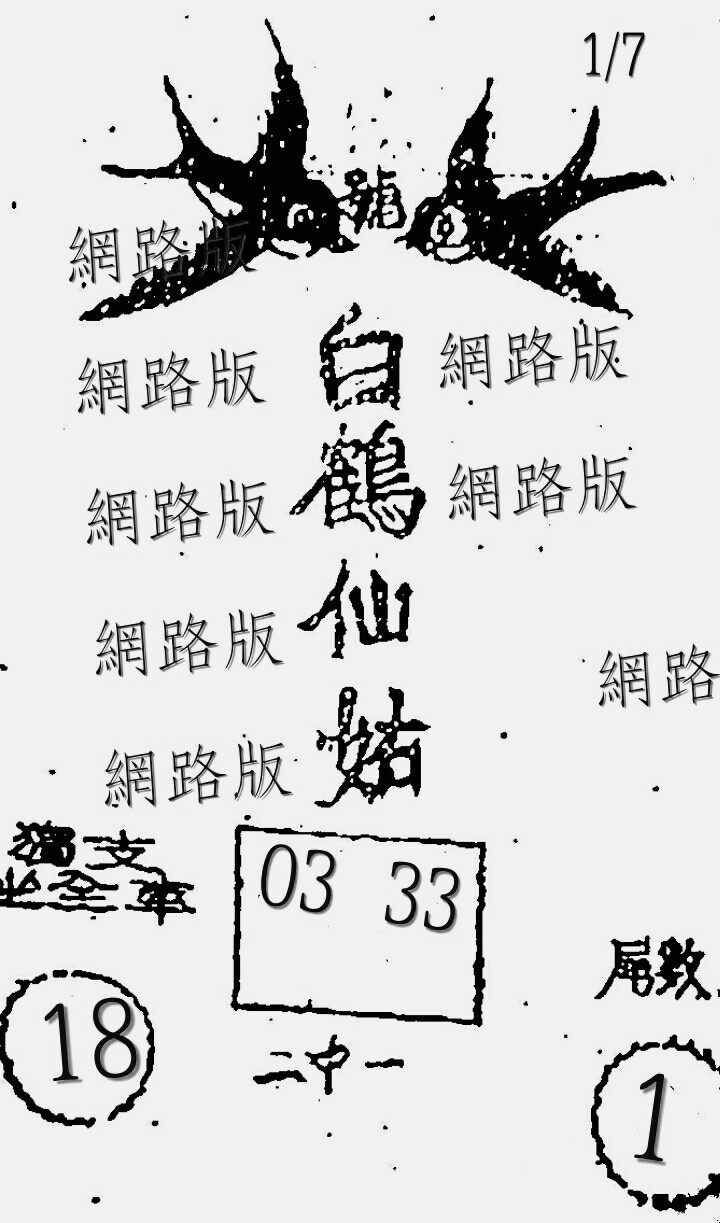 1/7
號
網路版
白鶴仙姑
網路版
網路版
網路版
網路版
網路版
網路
網路版
獨支
坐全車
03 33
尾數
18
二中一
1